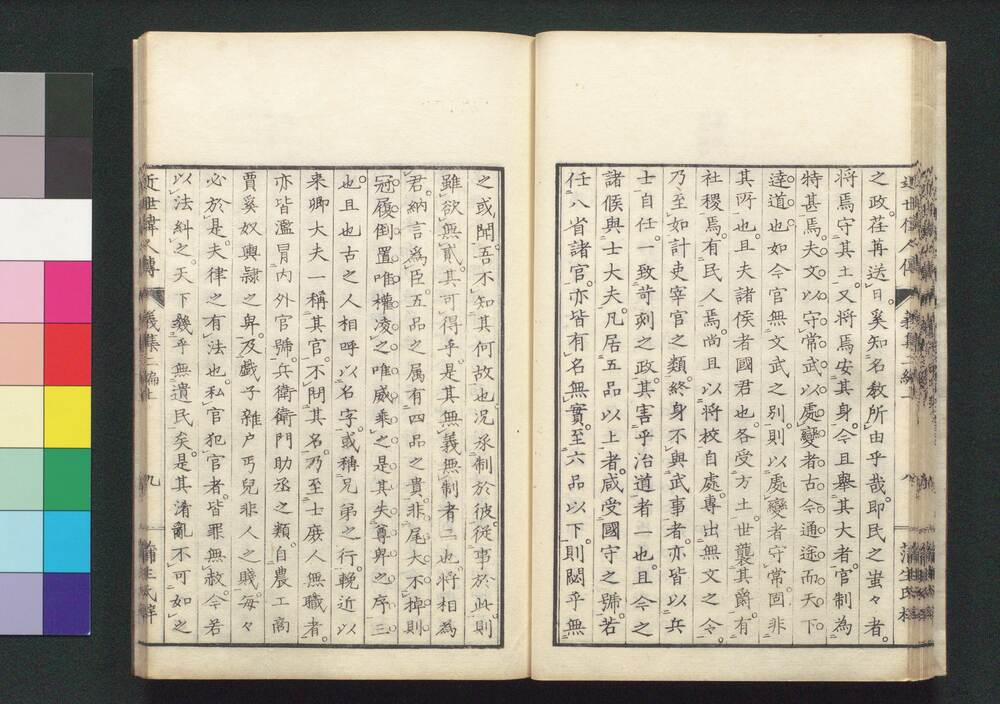 之政荏苒送日奚知名教所由乎哉即民之蚩々者
將焉守其土又將焉安其身今且舉其大者官制為
特甚焉夫文以守常武以處變者古今通途而天下
達道也如今官無文武之別則以處變者守常固非
其所也且夫諸侯者國君也各受方土世襲其爵有
社稷焉有民人焉尚且以將校自處專出無文之令
乃至如計吏宰官之類終身不與武事者亦皆以兵
士自任一致苛刻之政其害乎治道者一也且今之
諸侯與士大夫凡居五品以上者咸受國守之號若
任八省諸官亦皆有名無實至六品以下則闕乎無
之或聞吾不知其何故也况承制於彼從事於此則
雖欲無貳其可得乎是其無義無制者二也將相為
君納言為臣五品之属有四品之貴非尾大不掉則
冠履倒置唯權凌之唯威乘之是其失尊卑之序三
也且也古之人相呼以名字或稱兄弟之行輓近以
来卿大夫一稱其官不問其名乃至士庶人無職者
亦皆濫冒内外官號兵衛衛門助丞之類自農工商
賈奚奴輿隷之卑及戯子雜户丐兒非人之賤每々
必於是夫律之有法也私官犯官者皆罪無赦今若
以法糾之天下幾乎無遺民矣是其淆亂不可如之
近世偉人傳
義集二編上
九
蒲生氏梓